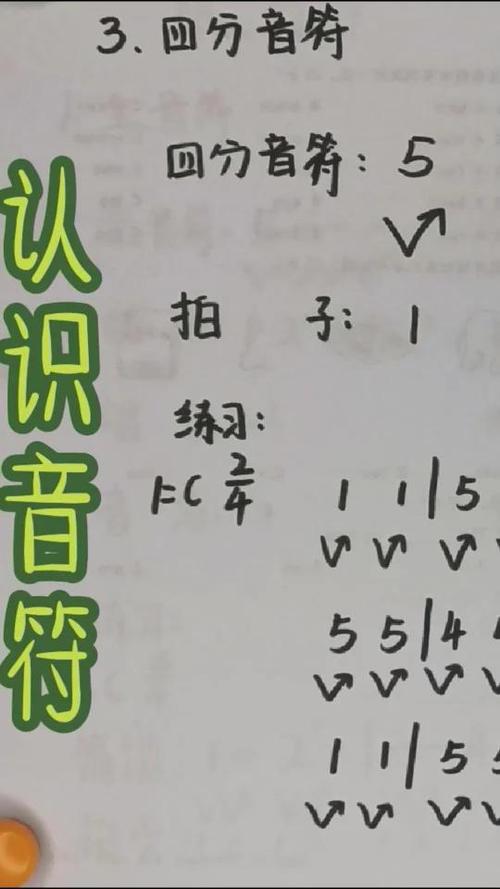 3. 四分音符
四分音符: 5
拍 子: 1
练习:
1=C 2/4 1 1 | 5
5 5 | 4
1 1 | 5
认识音符